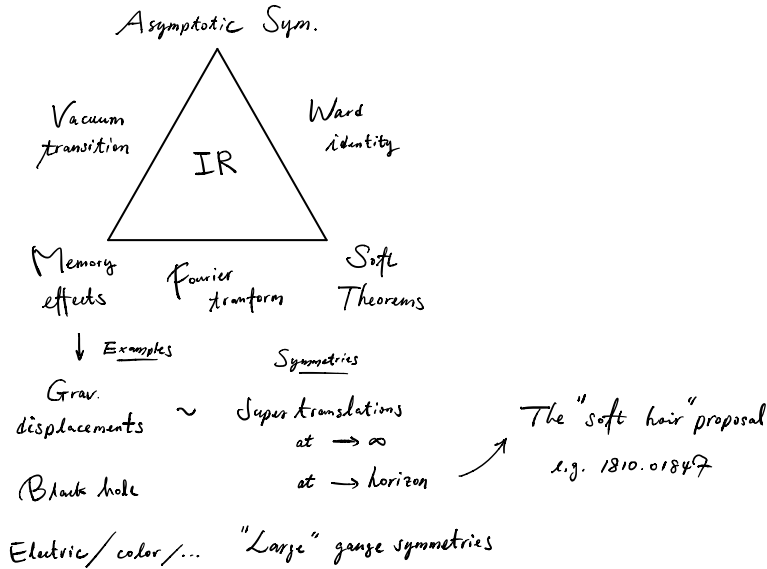 Asymptotic Sym.
Vacuum
transition
IR
Ward
identity
Memory
effects
Fourier
tranform
Soft
Theorems
↓ Examples
Symmetries
Grav.
displacements ~ Super translations
at → ∞
at → horizon
The "soft hair" proposal
e.g. 1810.01847
Black hole
Electric/color/... "Large" gauge symmetries